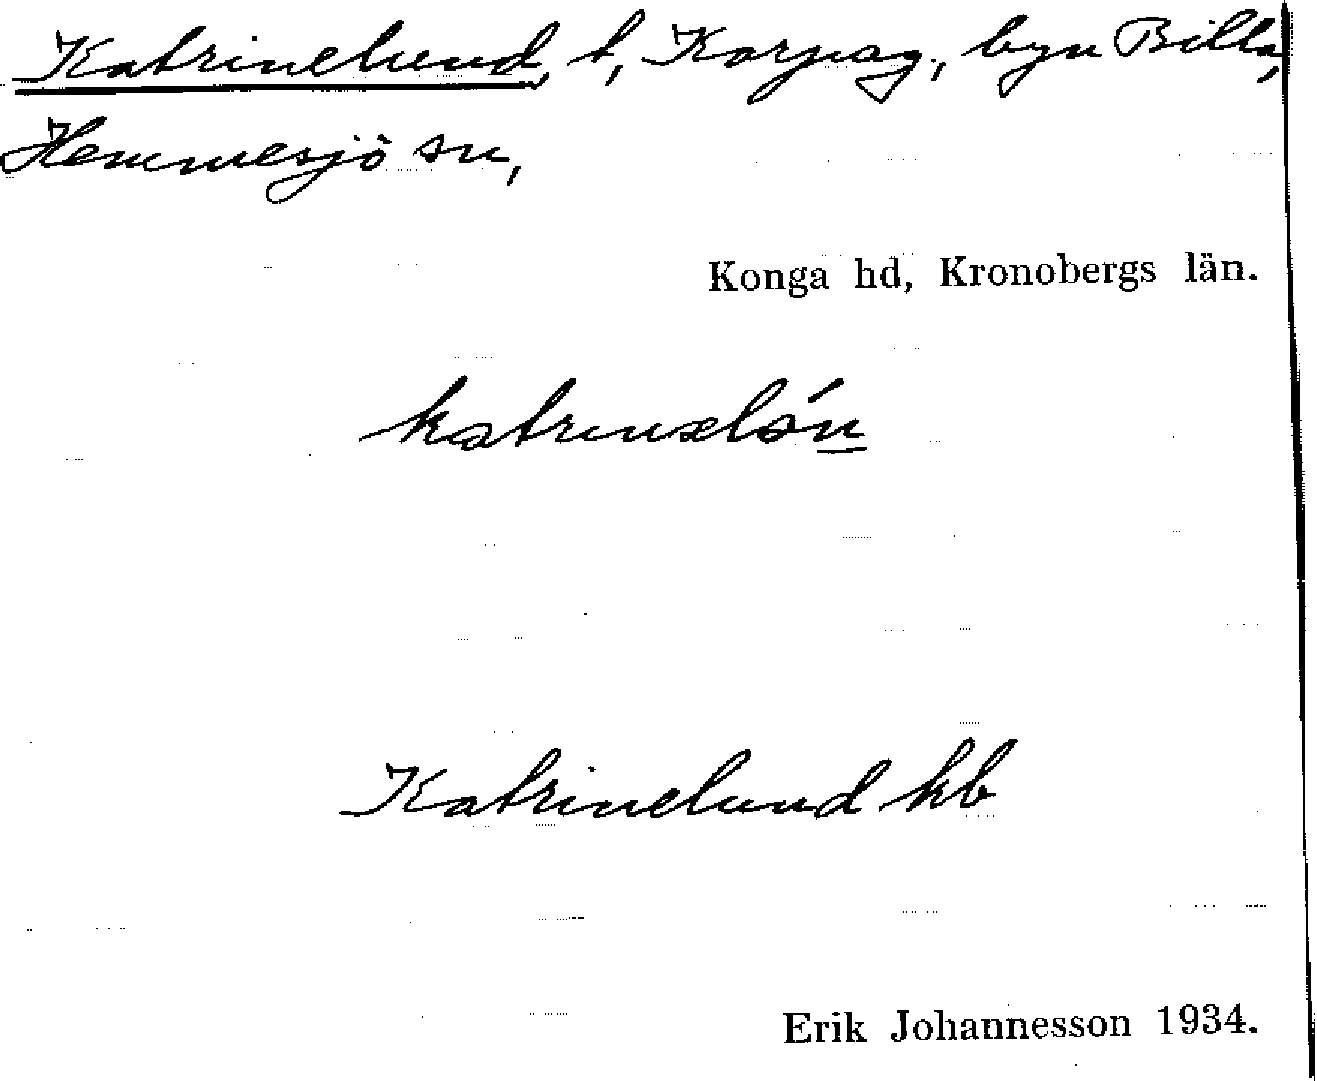 Katrinelund, t, Korpag, byn Billa,
Hemmesjö sn,
Konga hd, Kronobergs län.
katrinəló̀n
Katrinelund kb
Erik Johannesson 1934.